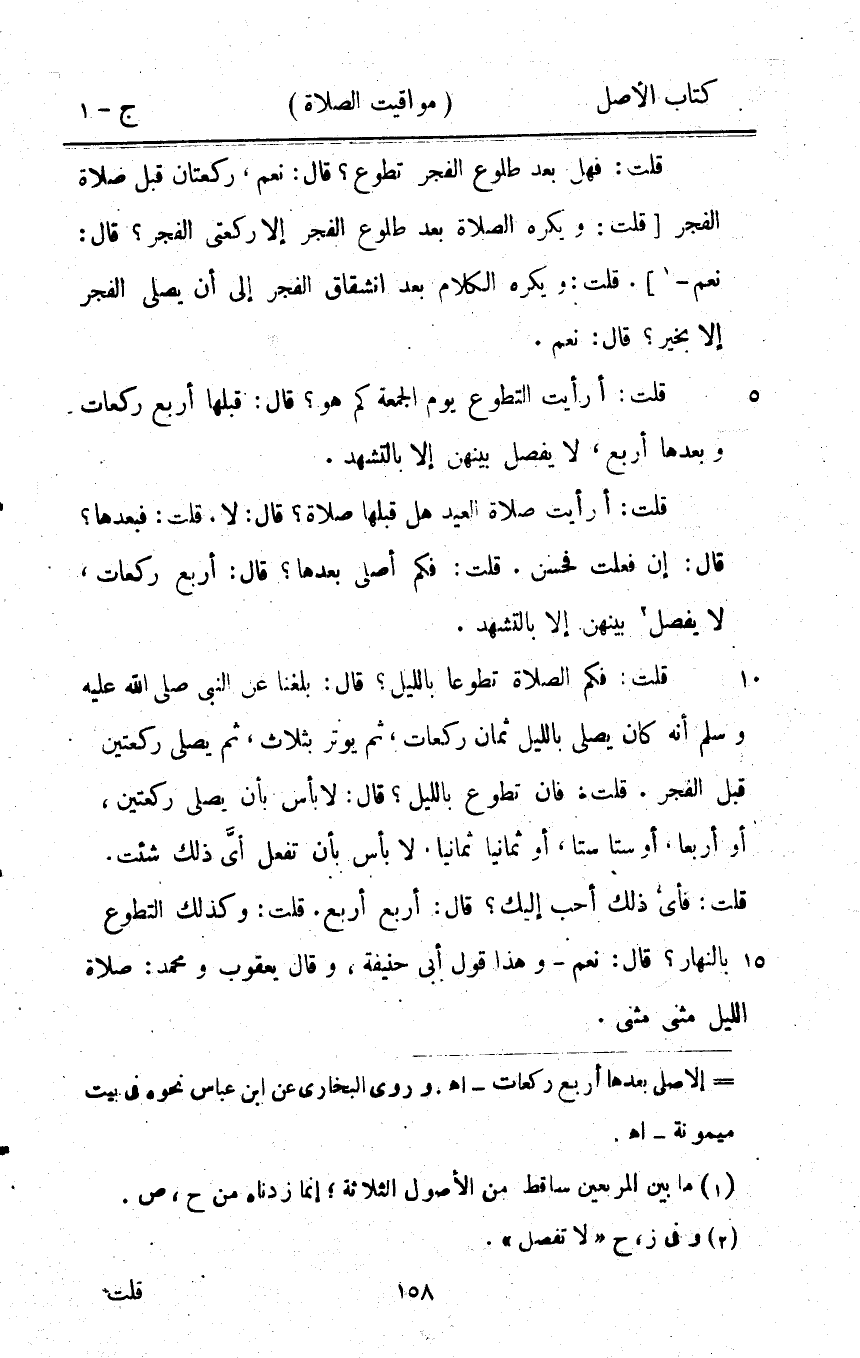 كتاب الأصل (مواقيت الصلاة) ج - ١
قلت: فهل بعد طلوع الفجر تطوع؟ قال: نعم، ركعتان قبل صلاة
الفجر [قلت: و يكره الصلاة بعد طلوع الفجر إلا ركعتى الفجر؟ قال:
نعم-١]. قلت: و يكره الكلام بعد انشقاق الفجر إلى أن يصلى الفجر
إلا بخير؟ قال: نعم.
٥ قلت: أ رأيت التطوع يوم الجمعة كم هو؟ قال: قبلها أربع ركعات
و بعدها أربع، لا يفصل بينهن إلا بالتشهد.
قلت: أ رأيت صلاة العيد هل قبلها صلاة؟ قال: لا. قلت: فبعدها؟
قال: إن فعلت فحسن. قلت: فكم أصلى بعدها؟ قال: أربع ركعات،
لا يفصل٢ بينهن إلا بالتشهد.
١٠ قلت: فكم الصلاة تطوعا بالليل؟ قال: بلغنا عن النبى صلى الله عليه
و سلم أنه كان يصلى بالليل ثمان ركعات، ثم يوتر بثلاث، ثم يصلى ركعتين
قبل الفجر. قلت: فان تطوع بالليل؟ قال: لا بأس بأن يصلى ركعتين،
أو أربعا، أو ستا ستا، أو ثمانيا ثمانيا. لا بأس بأن تفعل أىَّ ذلك شئت.
قلت: فأىُّ ذلك أحب إليك؟ قال: أربع أربع. قلت: وكذلك التطوع
١٥ بالنهار؟ قال: نعم - و هذا قول أبى حنيفة، و قال يعقوب و محمد: صلاة
الليل مثنى مثنى.
= إلا صلى بعدها أربع ركعات - اه. و روى البخارى عن ابن عباس نحوه فى بيت
ميمونة - اه.
(١) ما بين المربعين ساقط من الأصول الثلاثة؛ إنما زدناه من ح، ص.
(٢) و فى ز، ح «لا تفصل».
١٥٨ قلت